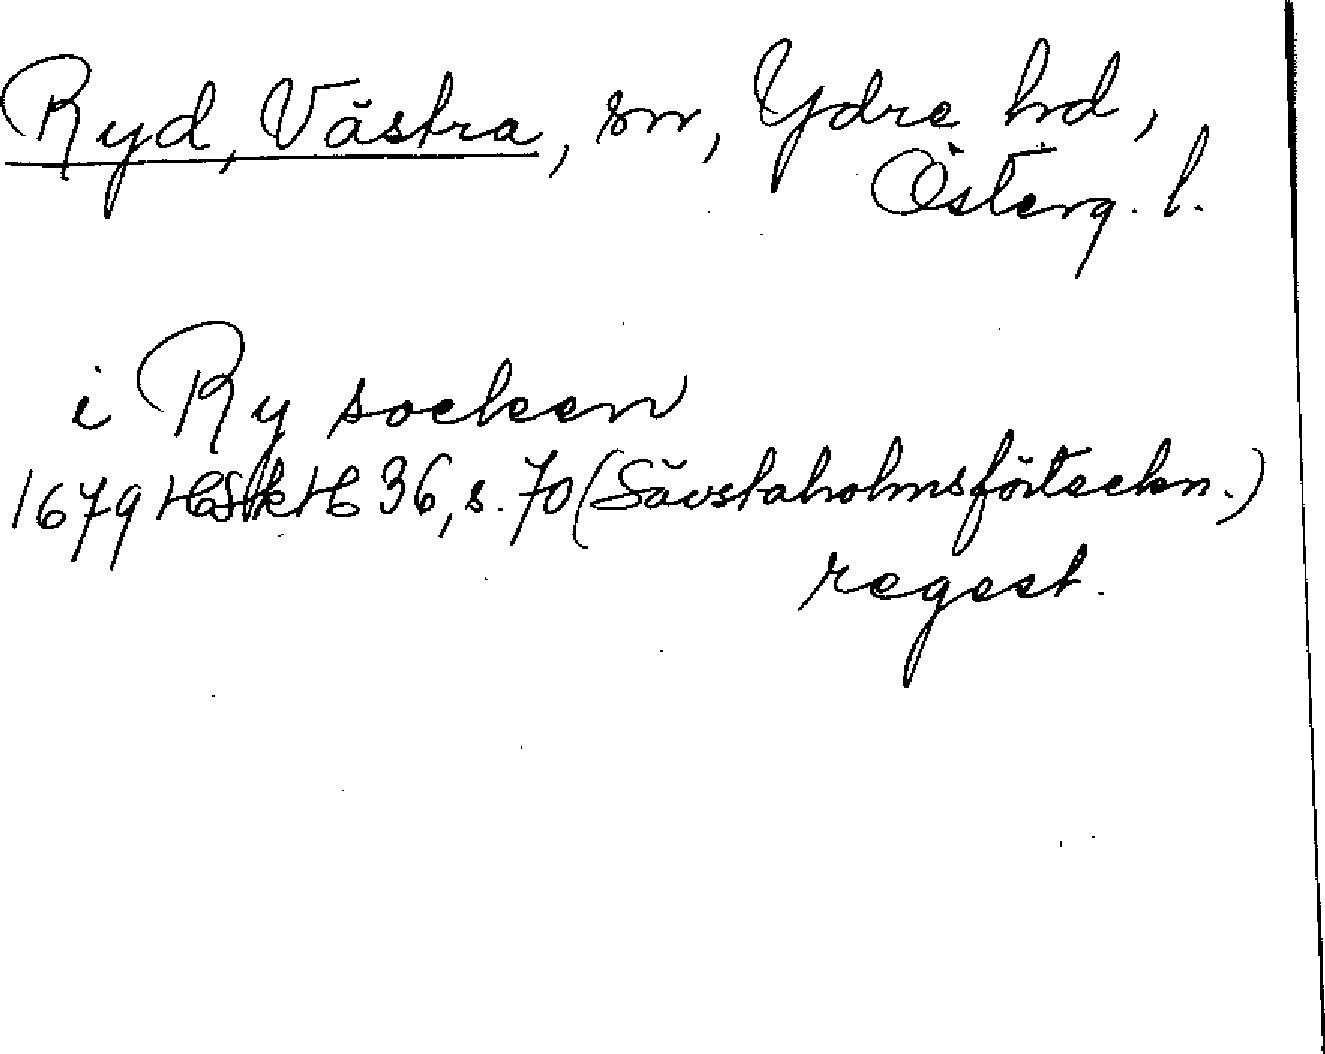 Ryd, Västra, sn, Ydre hd,
Österg. l.
i Ry socken
1679 HSH 36, s. 70 (Sävstaholmsförteckn.)
regest.